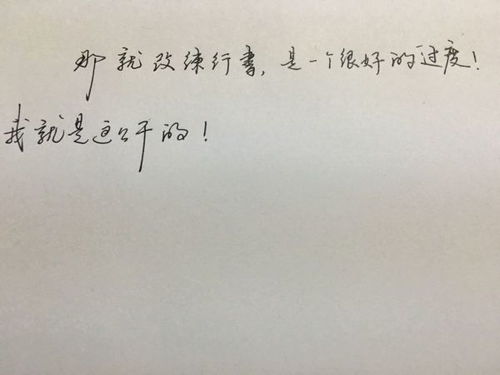 那就改练行書，是一个很好的过度！
我就是这么干的！